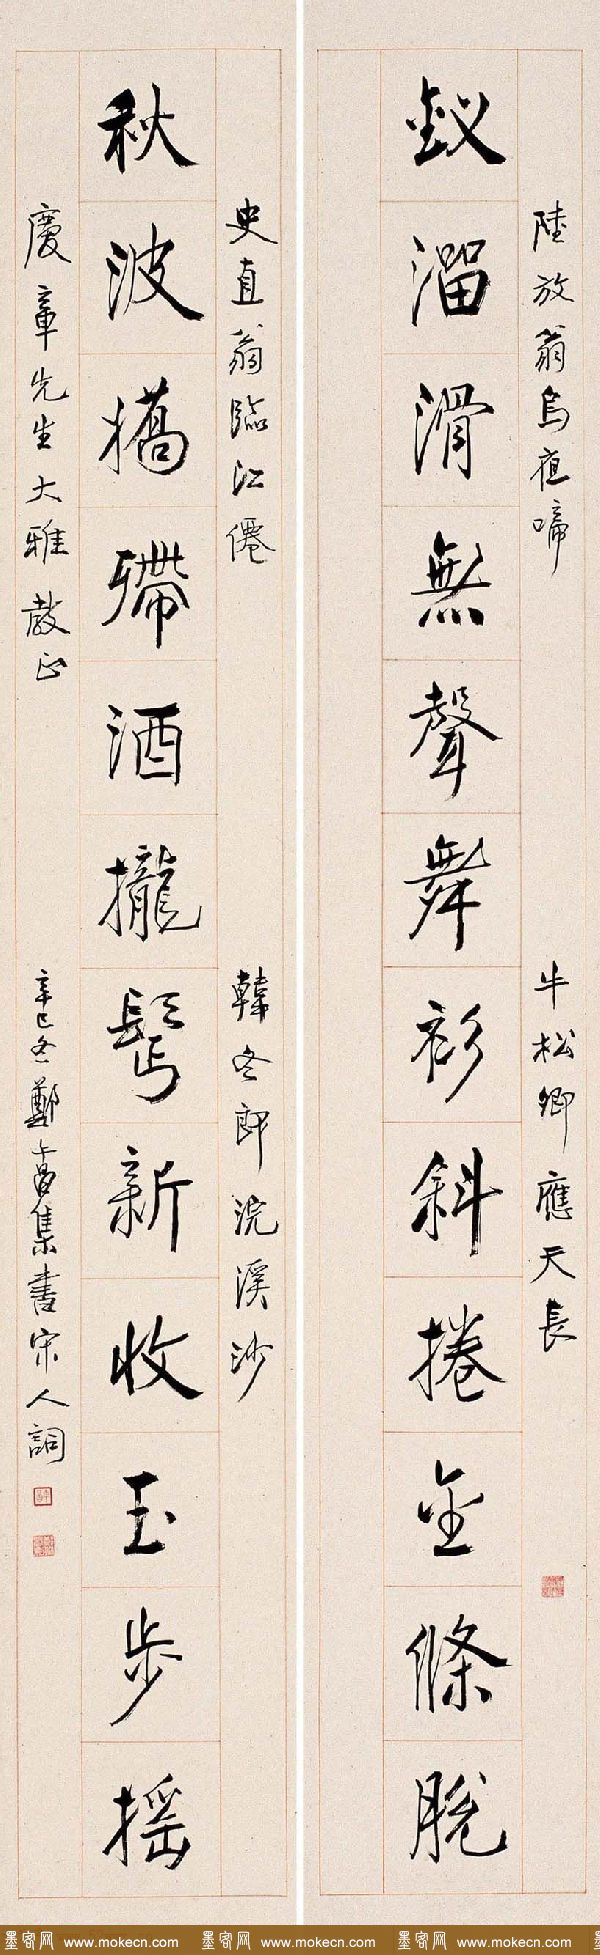 陸放翁烏夜啼
牛松卿應天長
釵溜滑無聲舞衫斜捲金條脫
史直翁臨江僊
韓冬郎浣溪沙
秋波嬌殢酒攏鬢新收玉步搖
慶章先生大雅教正
辛巳冬鄭午昌集書宋人詞
墨客网 www.mokecn.com 墨客网 www.mokecn.com 墨客网 www.mokecn.com